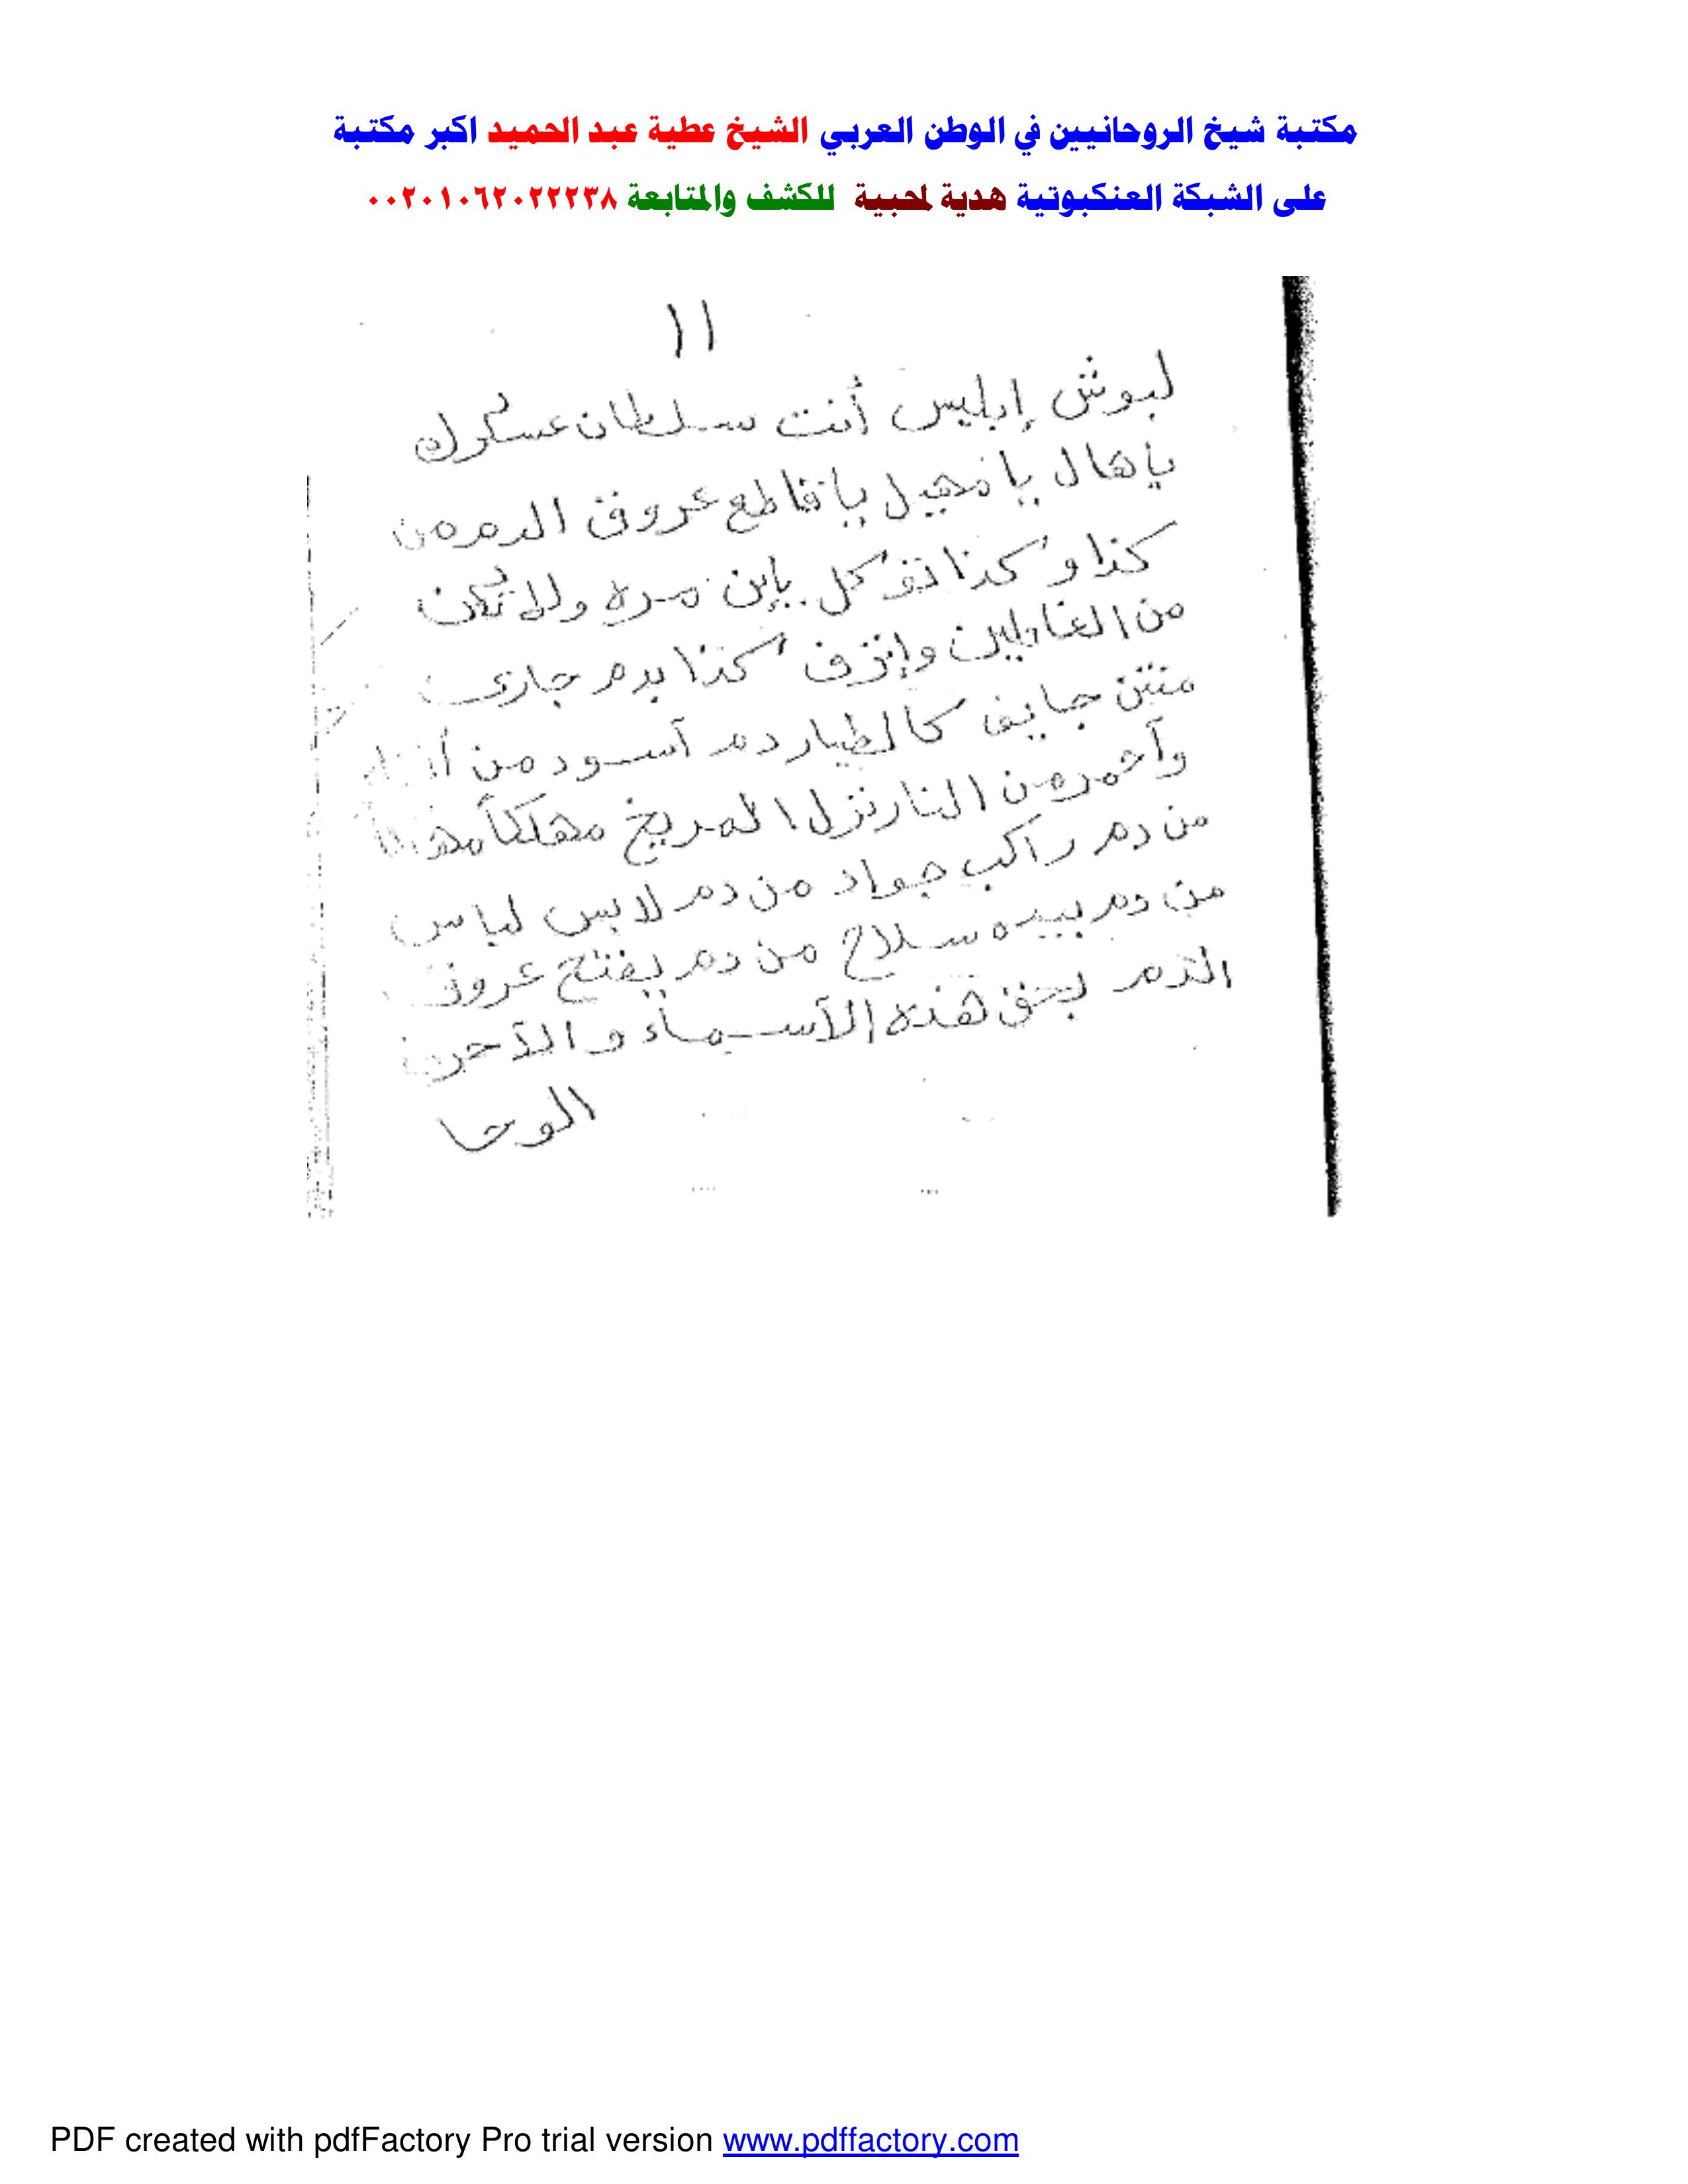 مكتبة شيخ الروحانيين في الوطن العربي الشيخ عطية عبد الحميد اكبر مكتبة
على الشبكة العنكبوتية هدية لمحبية للكشف والمتابعة ٠٠٢٠١٠٦٢٠٢٢٢٣٨
١١
لبوش إبليس أنت سلطان عسكرك
ياهال يا مهيل يا قاطع عروق الدم من
كذا وكذا توكل يابن مره ولا تكن
من الغافلين وإنزف كذا بدم جارى
منتن جايف كالطيار دم آسود من
وآحمر من النار نزل المريخ مهلكاً
من دم راكب جواد من دم لابس لباس
من دم بيده سلاح من دم يفتح عروق
الدم بحق هذه الآسماء و الآحرف
الوحا
PDF created with pdfFactory Pro trial version www.pdffactory.com